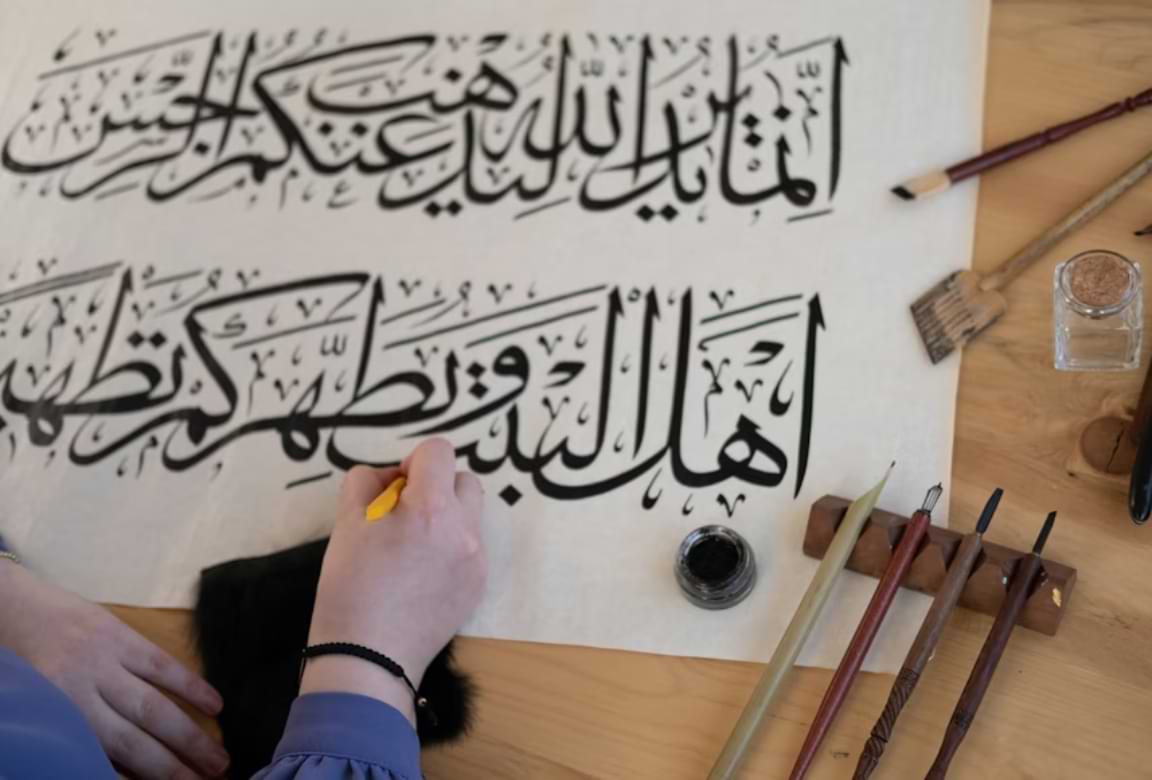 إِنَّمَا يُرِيدُ اللَّهُ لِيُذْهِبَ عَنْكُمُ الرِّجْسَ
أَهْلَ الْبَيْتِ وَيُطَهِّرَكُمْ تَطْهِيـ